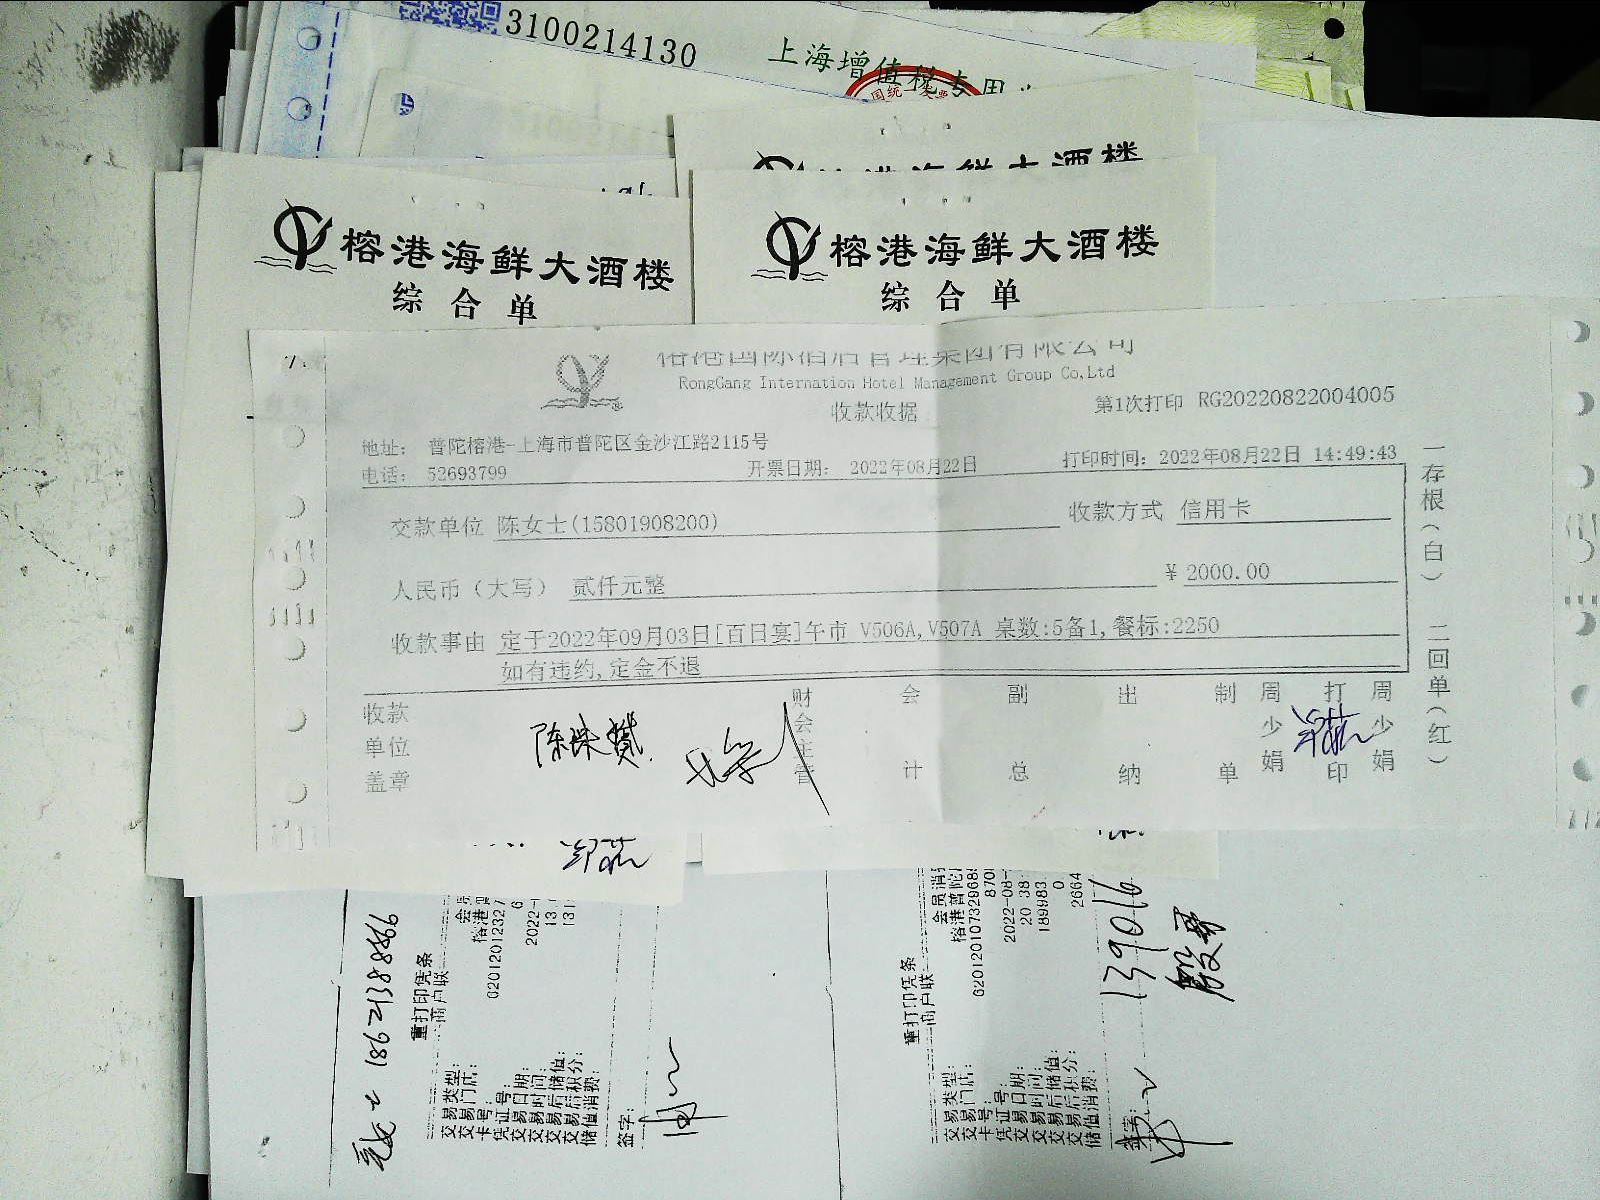 3100214130
上海增值税专用
国统一发票
榕港海鲜大酒楼
榕港海鲜大酒楼
综合单
榕港海鲜大酒楼
综合单
榕港国际酒店管理集团有限公司
RongGang Internation Hotel Management Group Co,Ltd
收款收据
第1次打印 RG20220822004005
地址： 普陀榕港-上海市普陀区金沙江路2115号
电话： 52693799
开票日期： 2022年08月22日
打印时间：2022年08月22日 14:49:43
交款单位 陈女士(15801908200)
收款方式 信用卡
人民币（大写） 贰仟元整
￥2000.00
收款事由 定于2022年09月03日[百日宴]午市 V506A,V507A 桌数:5备1,餐标:2250
如有违约,定金不退
一存根（白） 二回单（红）
收款单位盖章
财会主管
会计
副总
出纳
制单
周少娟
打印
周少娟
18621388866
重打印凭条
商户联
交易类型：
交易门店： 榕港
卡号： 62012012327
凭证号： 6
交易日期： 2022-
交易时间： 13
交易后储值： 131
交易后积分：
储值消费：
签字：
重打印凭条
商户联
交易类型： 会员消
交易门店： 榕港普陀
卡号： 62012010732968
凭证号： 870
交易日期： 2022-08-
交易时间： 20 38
交易后储值： 189983
交易后积分： 0
储值消费： 2664
签字：
139016